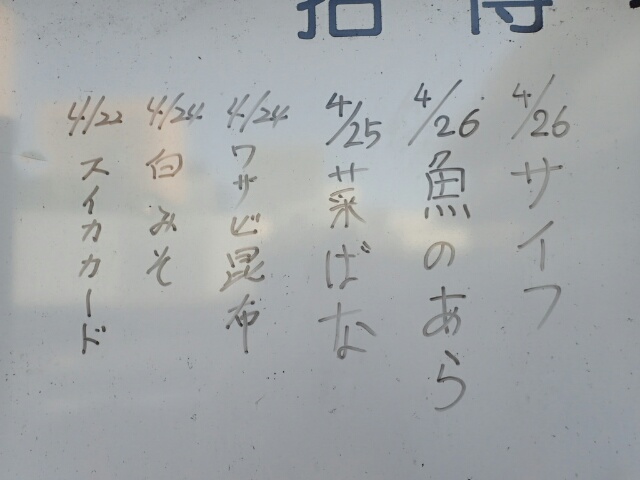 4/26 サイフ
4/26 魚のあら
4/25 菜ばな
4/24 ワサビ昆布
4/24 白みそ
4/22 スイカカード